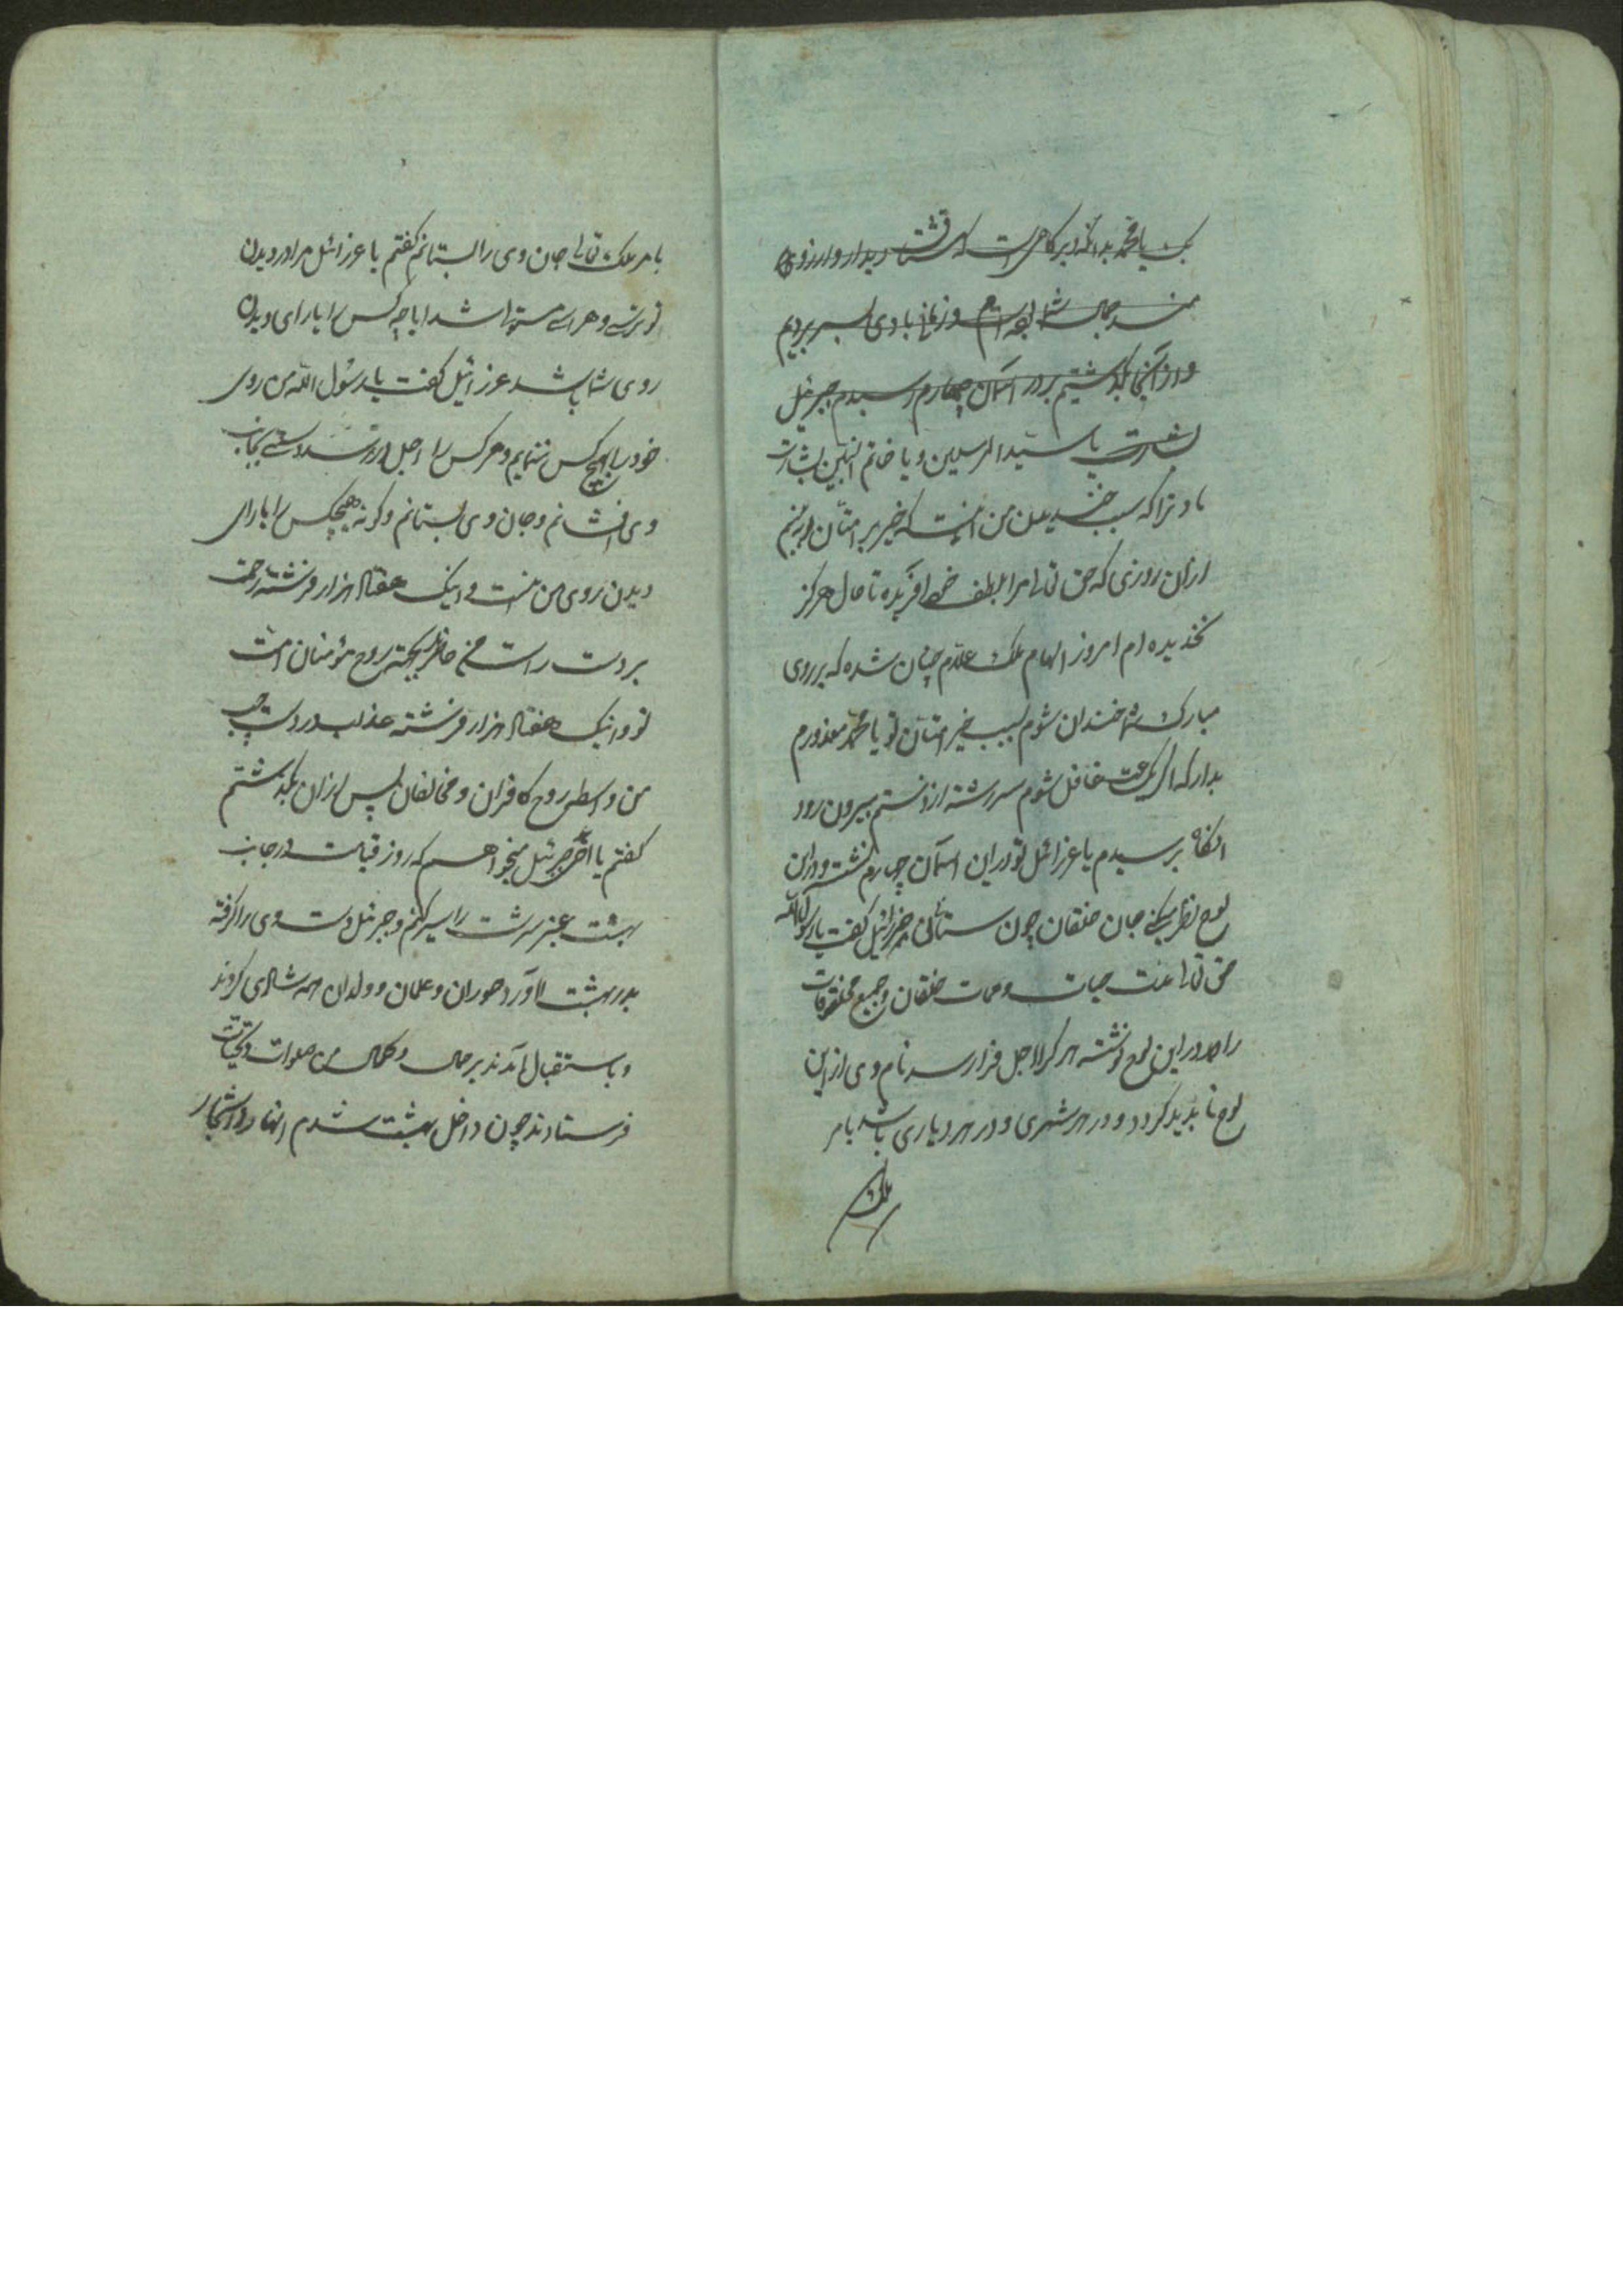 یا محمد بدانکه دیر کاهی است که مشتاق دیدار و آرزوی
جمال شما بوده‌ام و زمانی با وی بسر بردیم
و از آنجا بکذشتیم بر در آسمان چهارم رسیدم جبرئیل
کفت یا سید المرسلین و یا خاتم النبیین بشارت
باد ترا که سبب خندیدن من آنست که خیر بر امتان تو بینم
از آن روزی که حق تعالی مرا بلطف خود آفریده تا حال هرکز
نخندیده‌ام امروز الهام ملک علام چنان شده که بر روی
مبارک شما خندان شوم بسبب خیر امتان تو یا محمد معذورم
بدار که اکر یکساعت غافل شوم سررشته از دستم بیرون رود
آنکاه پرسیدم یا عزرائیل تو در این آسمان چهارم نشسته و در این
لوح نظر میکنی جان خلقان چون ستانی عزرائیل کفت یا رسول الله
حق تعالی حیات و ممات خلقان و جمیع مخلوقات
را در این لوح نوشته هر کرا اجل فرا رسد نام وی از این
لوح ناپدید کردد و در هر شهری و در هر دیاری باشد بامر
ملک
بامر ملک تعالی جان وی را بستانم کفتم یا عزرائیل مرا در دیدن
تو ترسی و هراسی مستولی شد ایا چه کس را یارای دیدن
روی شما باشد عزرائیل کفت یا رسول الله من روی
خود را بهیچ کس ننمایم و هر کس را اجل در رسد دستی بجانب
وی افشانم و جان وی بستانم و کرنه هیچکس را یارای
دیدن روی من نیست و اینک هفتاد هزار فرشته رحمت
بر دست راست من حاضر بجهة روح مؤمنان امت
تو و اینک هفتاد هزار فرشته عذاب در دست چپ
من واسطه روح کافران و مخالفان پس از آن بکذشتم
کفتم یا اخی جبرئیل میخواهم که روز قیامت در جانب
بهشت عنبر سرشت را سیر کنم و جبرئیل دست وی را کرفته
بدر بهشت آورد حوران و غلمان و ولدان همه شادی کردند
و باستقبال آمدند بر جمال و کمال من صلوات و تحیات
فرستادند چون داخل بهشت شدم انهار و اشجار